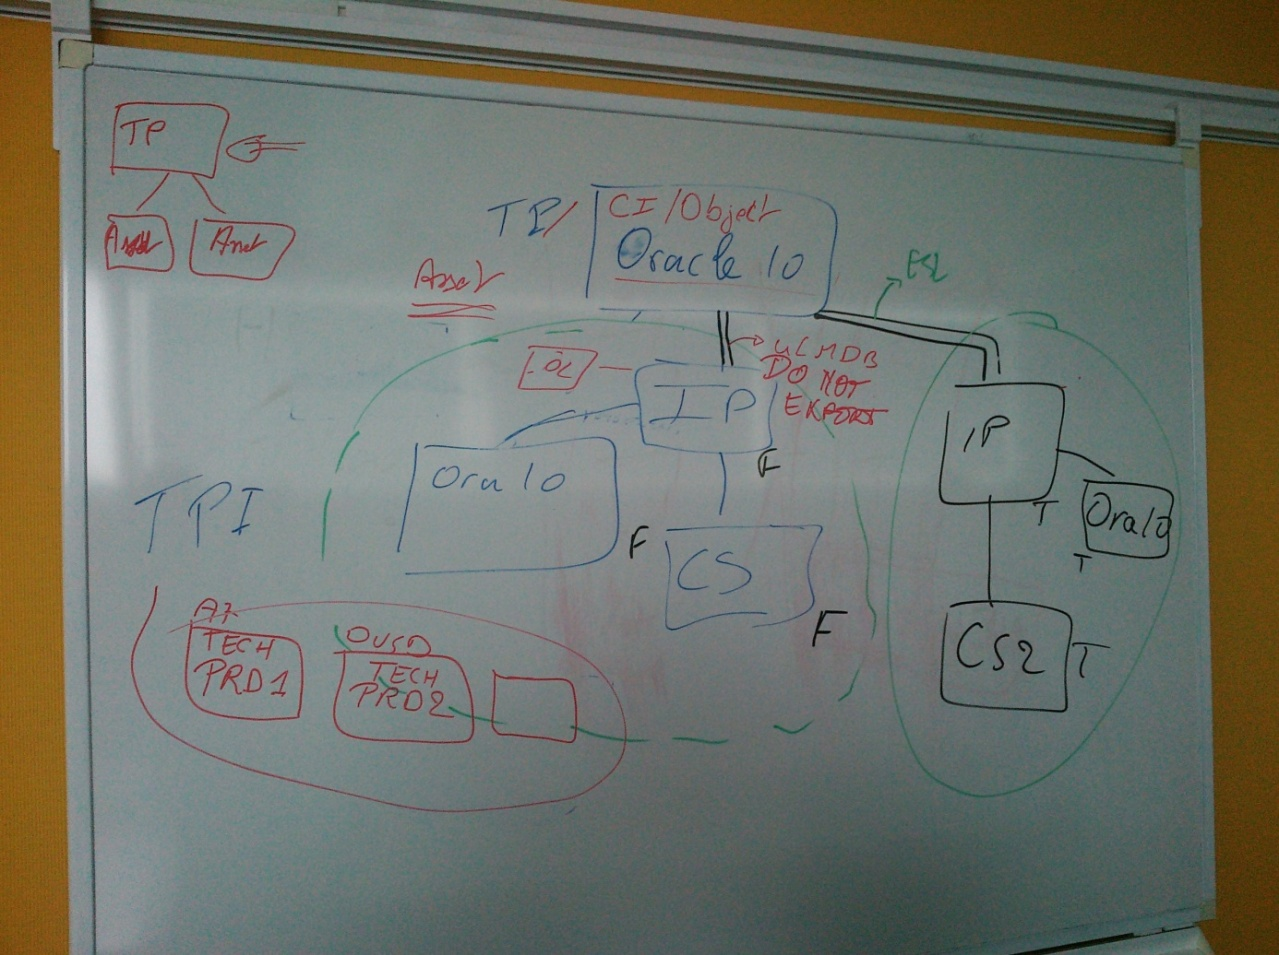 TP
Asset
Asset
TP/
CI/Object
Oracle 10
Asset
ESL
UCMDB
DO NOT
EXPORT
IP
F
Ora 10
F
CS
F
TPI
IP
T
Ora10
T
CS2
T
A7
TECH
PRD1
OVSD
TECH
PRD2